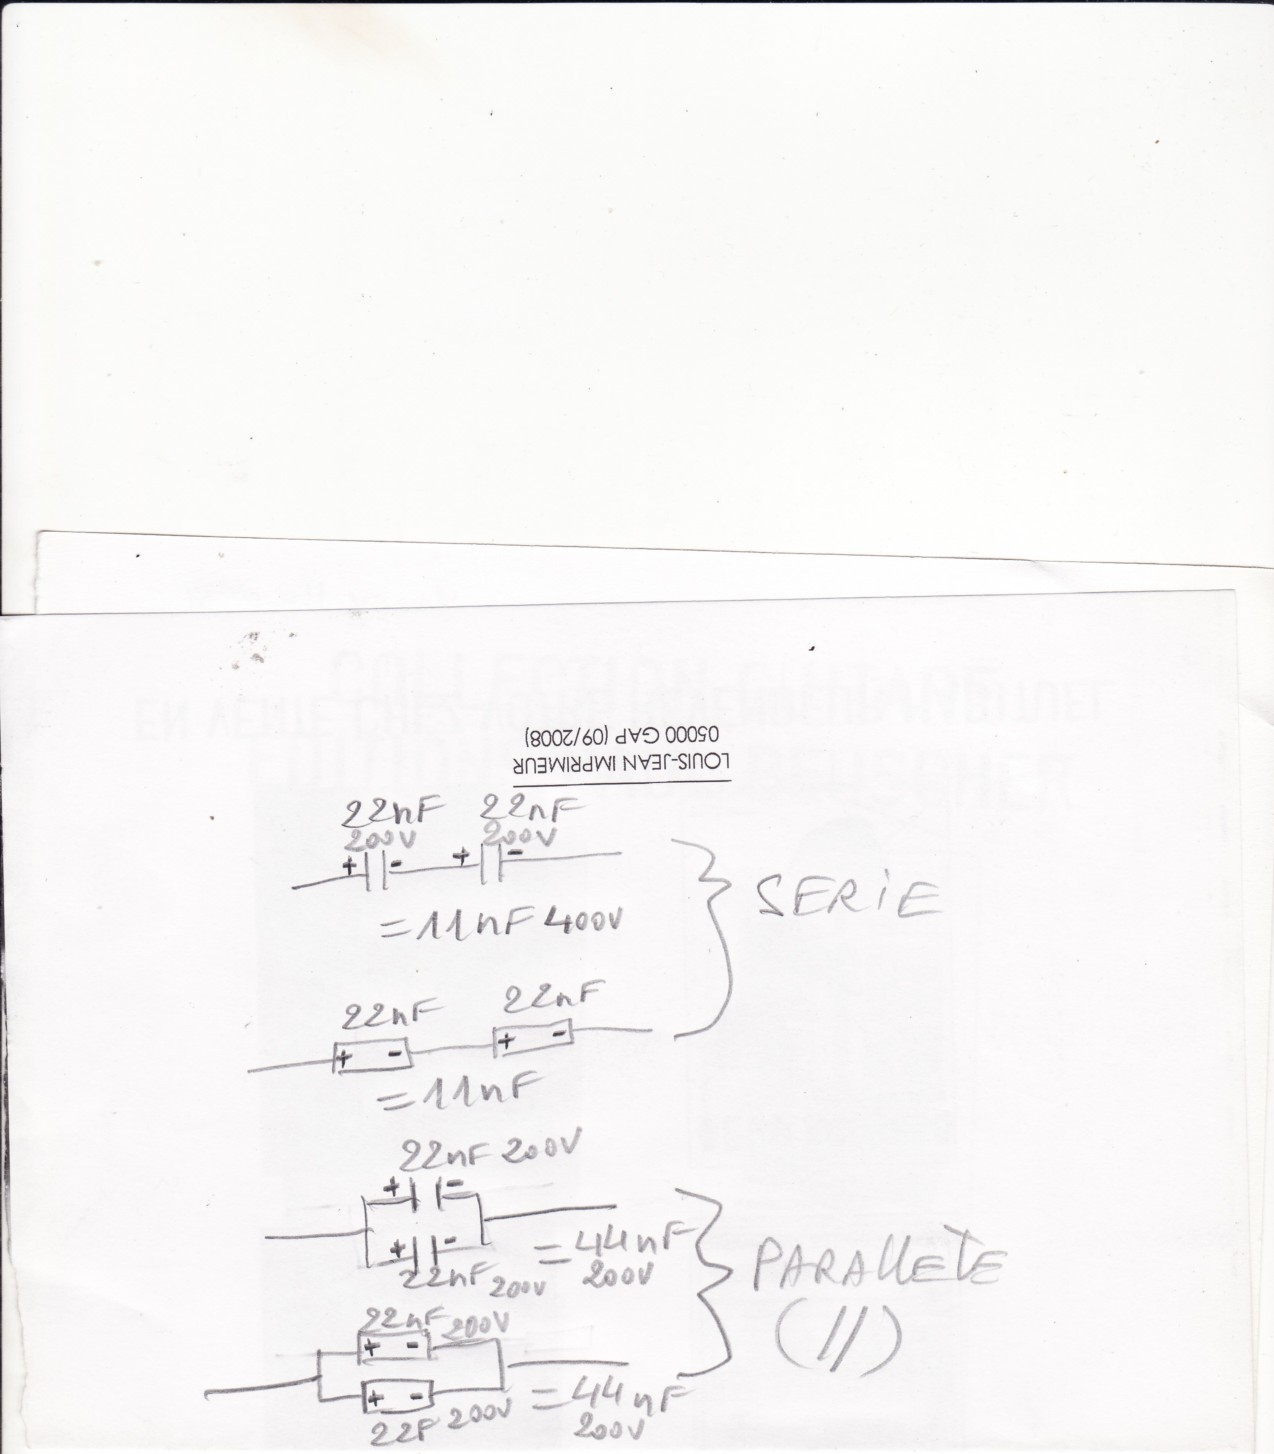 EN VENTE CHEZ VOTRE REVENDEUR HABITUEL
LOUIS-JEAN IMPRIMEUR
05000 GAP (09/2008)
22nF 22nF
200V 200V
+ - + -
= 11nF 400V
SERIE
22nF 22nF
+ - + -
= 11nF
22nF 200V
+ -
+ -
22nF 200V
= 44nF
200V
PARALLETE
(//)
22nF 200V
+ -
+ -
22F 200V
= 44nF
200V